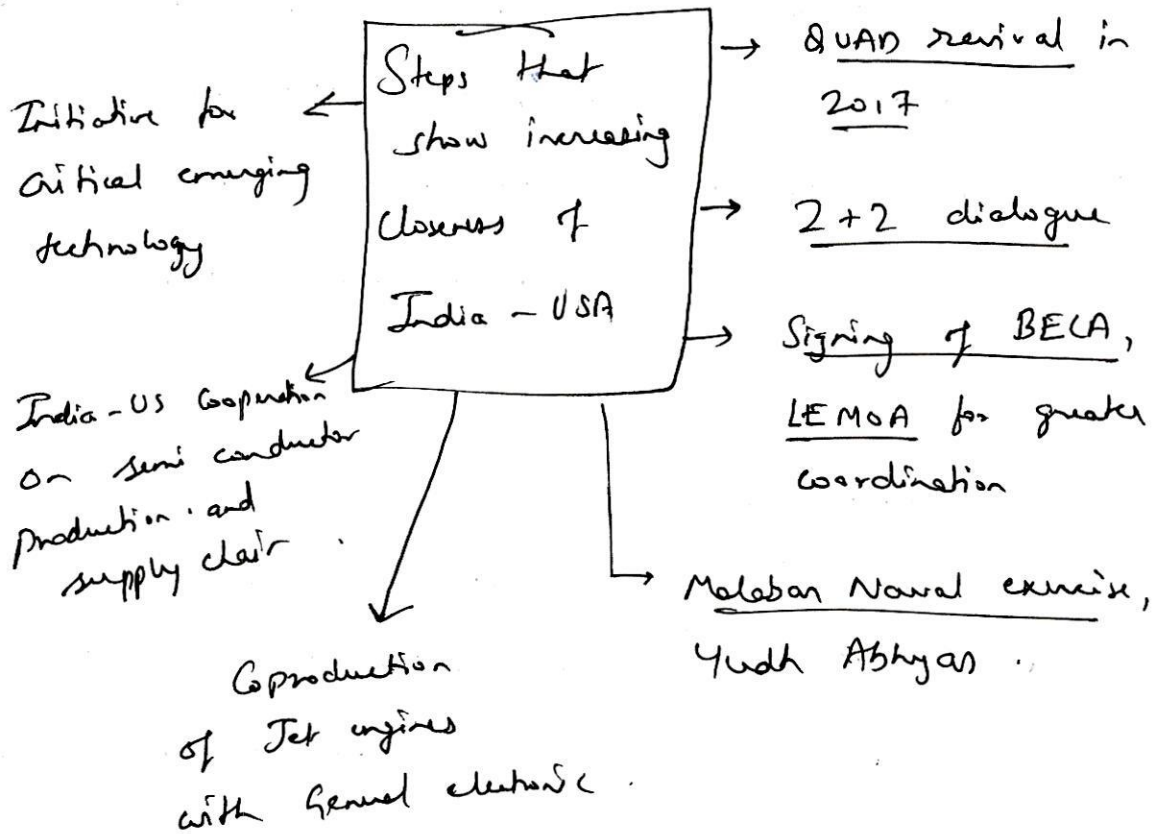 Steps that
show increasing
Closeness of
India - USA
→ QUAD revival in
2017
→ 2+2 dialogue
→ Signing of BECA,
LEMOA for greater
coordination
→ Malaban Naval exercise,
Yudh Abhyas .
Coproduction
of Jet engines
with General electronic .
India-US Cooperation
on semi conductor
production . and
supply chair .
Initiative for
critical emerging
technology